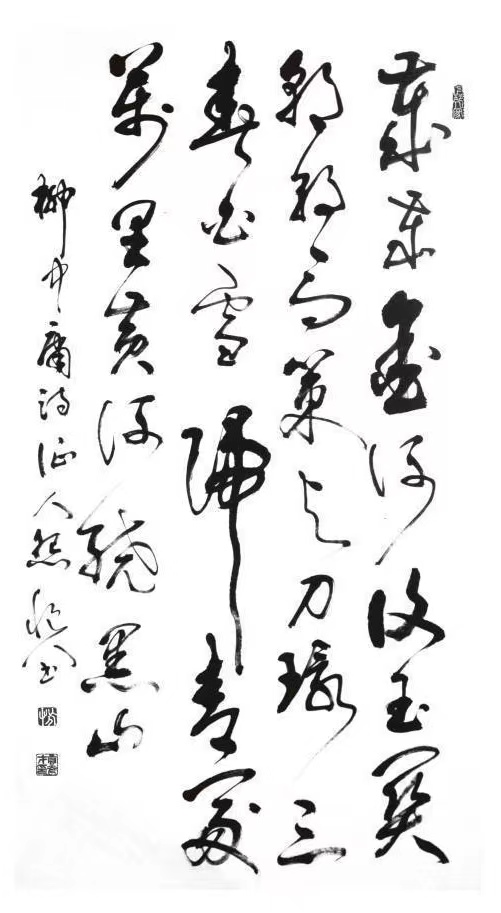 歲歲金河復玉關
朝朝馬策与刀環三
春白雪歸青冢
萬里黃河繞黑山
柳中庸詩征人怨 書